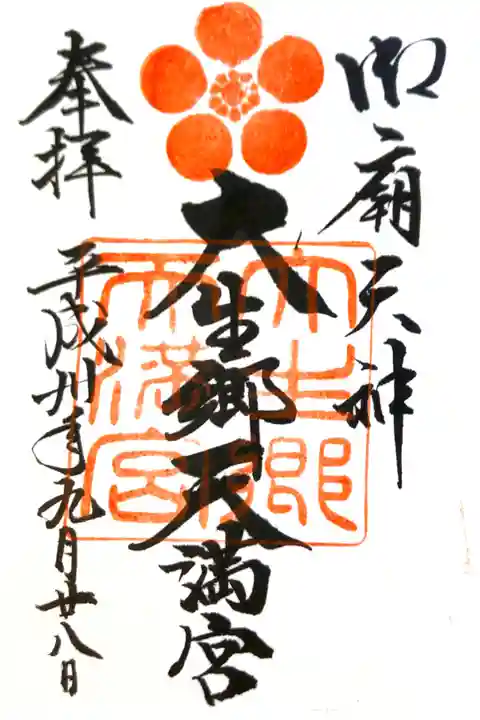 御廟天神
大生郷天満宮
奉拝
平成卅年九月廿八日
大生郷
天満宮